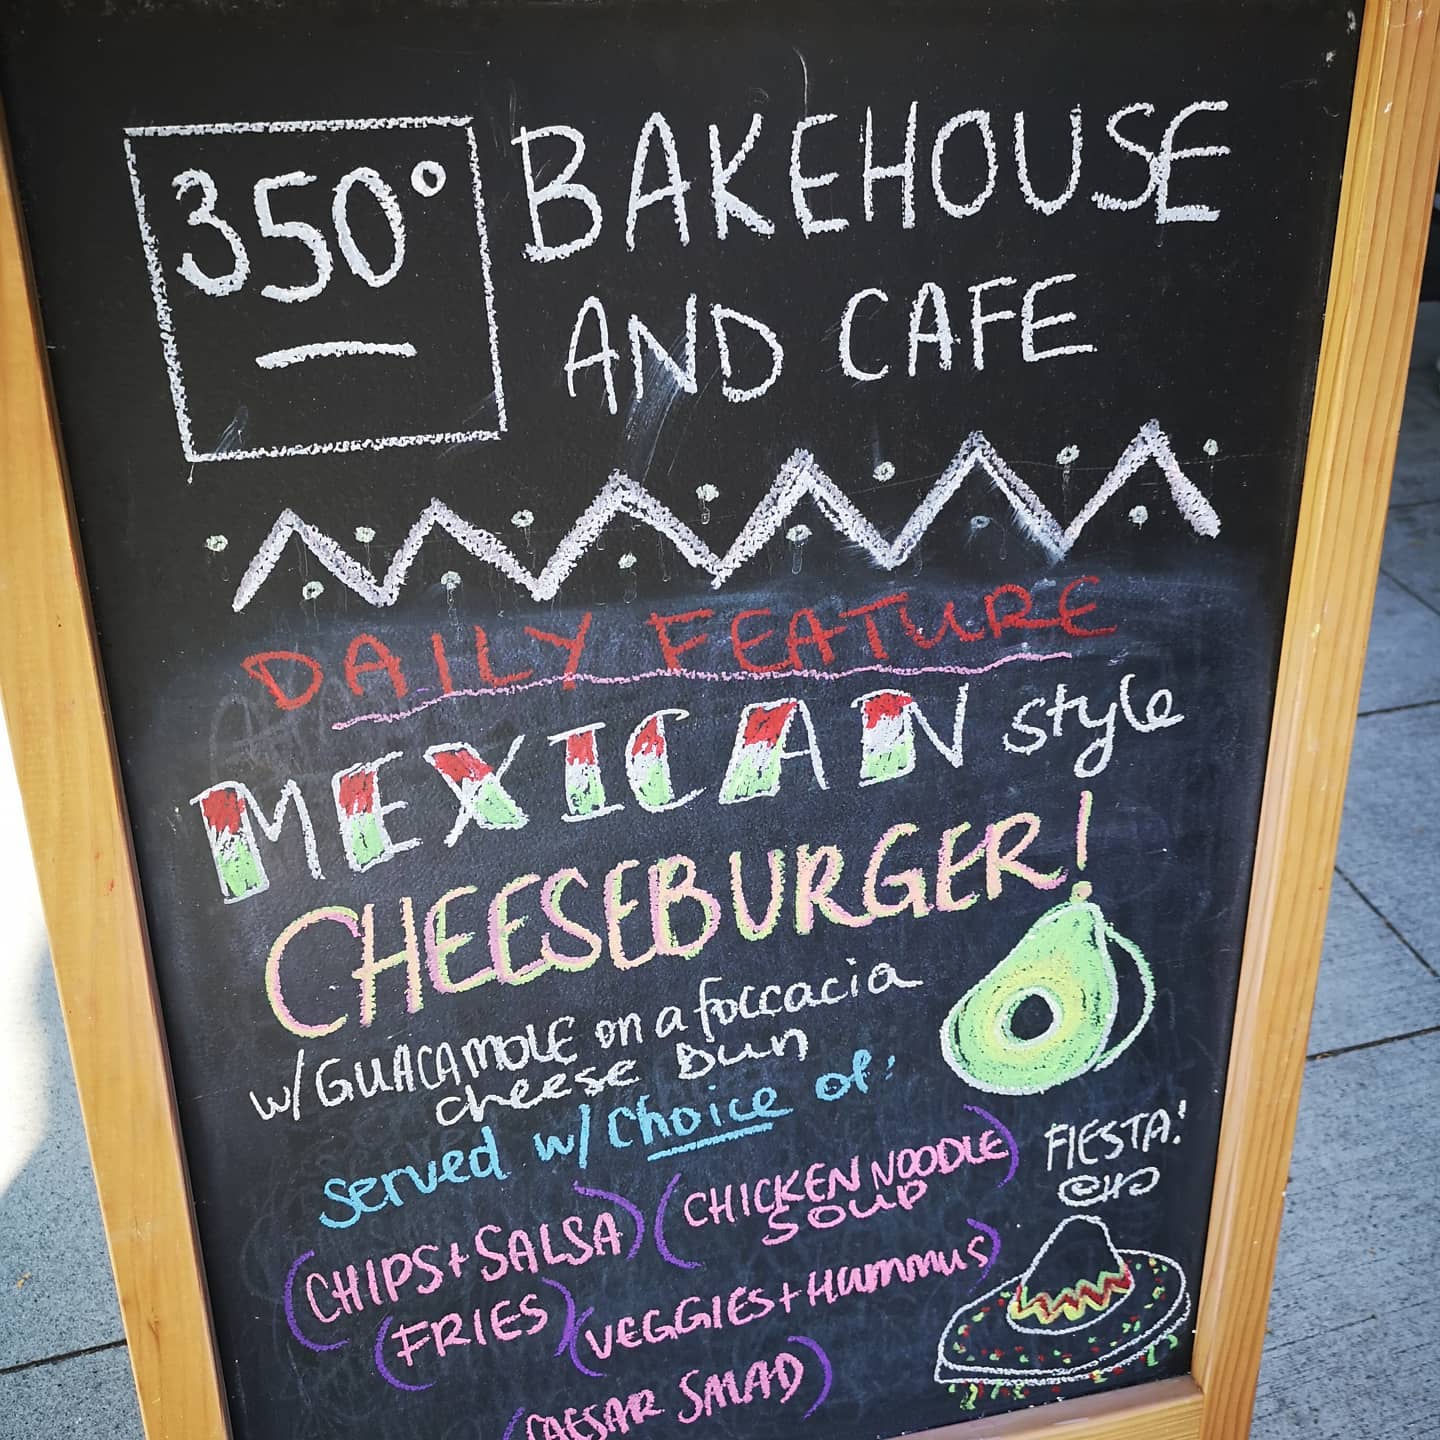 350°
BAKEHOUSE
AND CAFE
DAILY FEATURE
MEXICAN style
CHEESEBURGER!
w/GUACAMOLE on a foccacia
cheese bun
Served w/choice of:
(CHIPS+SALSA)
(CHICKEN NOODLE
SOUP)
(FRIES)
(VEGGIES+Hummus)
(CAESAR SALAD)
FIESTA!